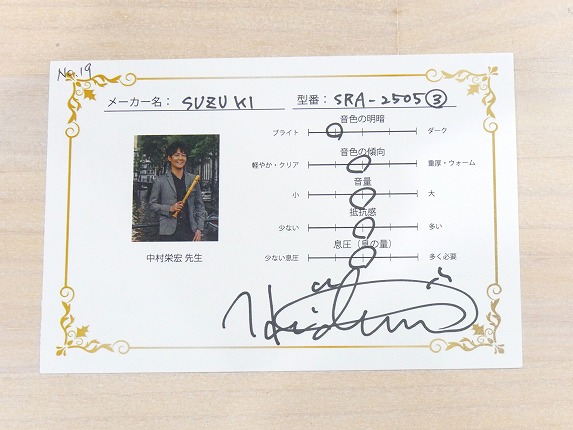 No.19
メーカー名： SUZUKI 型番： SRA-2505③
音色の明暗
ブライト ダーク
音色の傾向
軽やか・クリア 重厚・ウォーム
音量
小 大
抵抗感
少ない 多い
息圧（息の量）
少ない息圧 多く必要
中村栄宏 先生